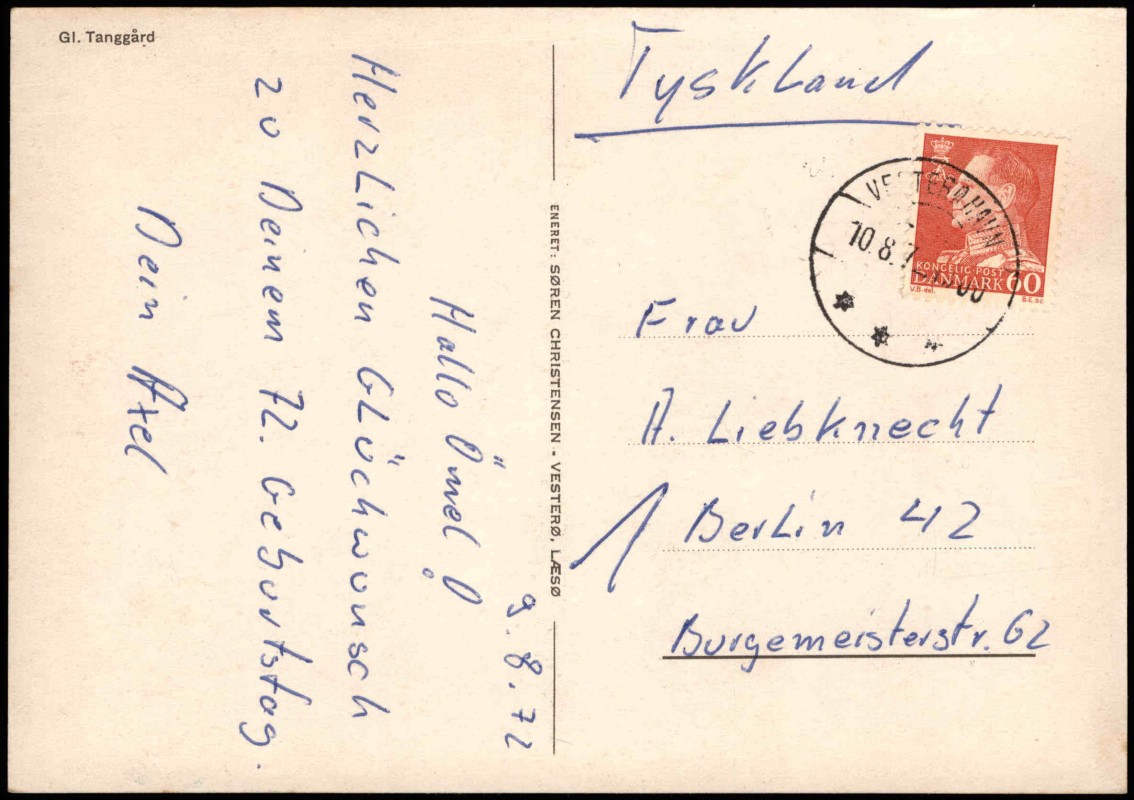 Gl. Tanggård
9.8.72
Hallo Ömel!
Herzlichen Glückwunsch
zu Deinem 72. Geburtstag.
Dein Axel
ENERET: SØREN CHRISTENSEN - VESTERØ, LÆSØ
Tyskland
VESTERØHAVN
10.8.7
KONGELIG POST
DANMARK 60
V.B. del.
B.E. sc
Frau
A. Liebknecht
1 Berlin 42
Burgemeisterstr. 62